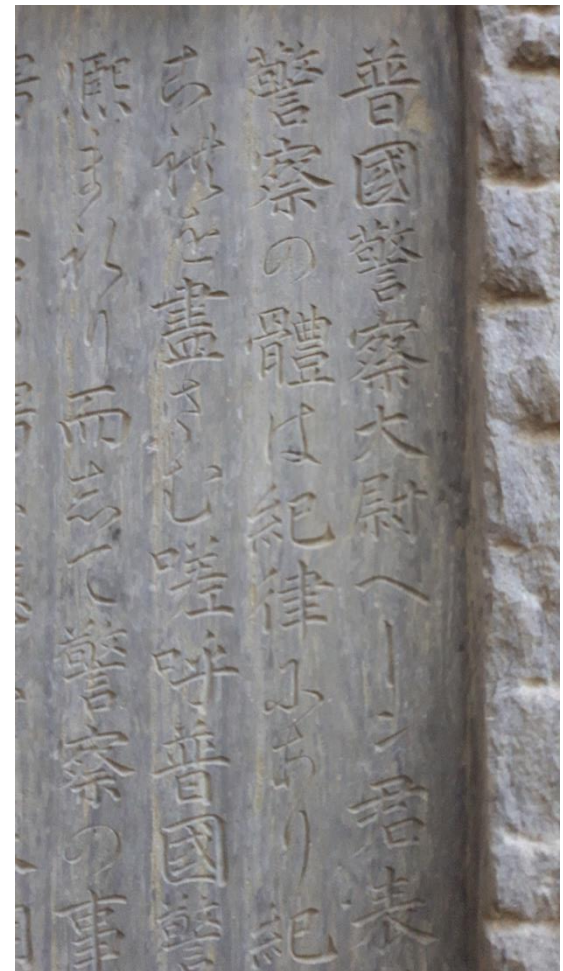 普國警察大尉ヘーン君表
警察の體は紀律にあり紀
これを盡さむ嗟呼普國警
まれり而志て警察の事